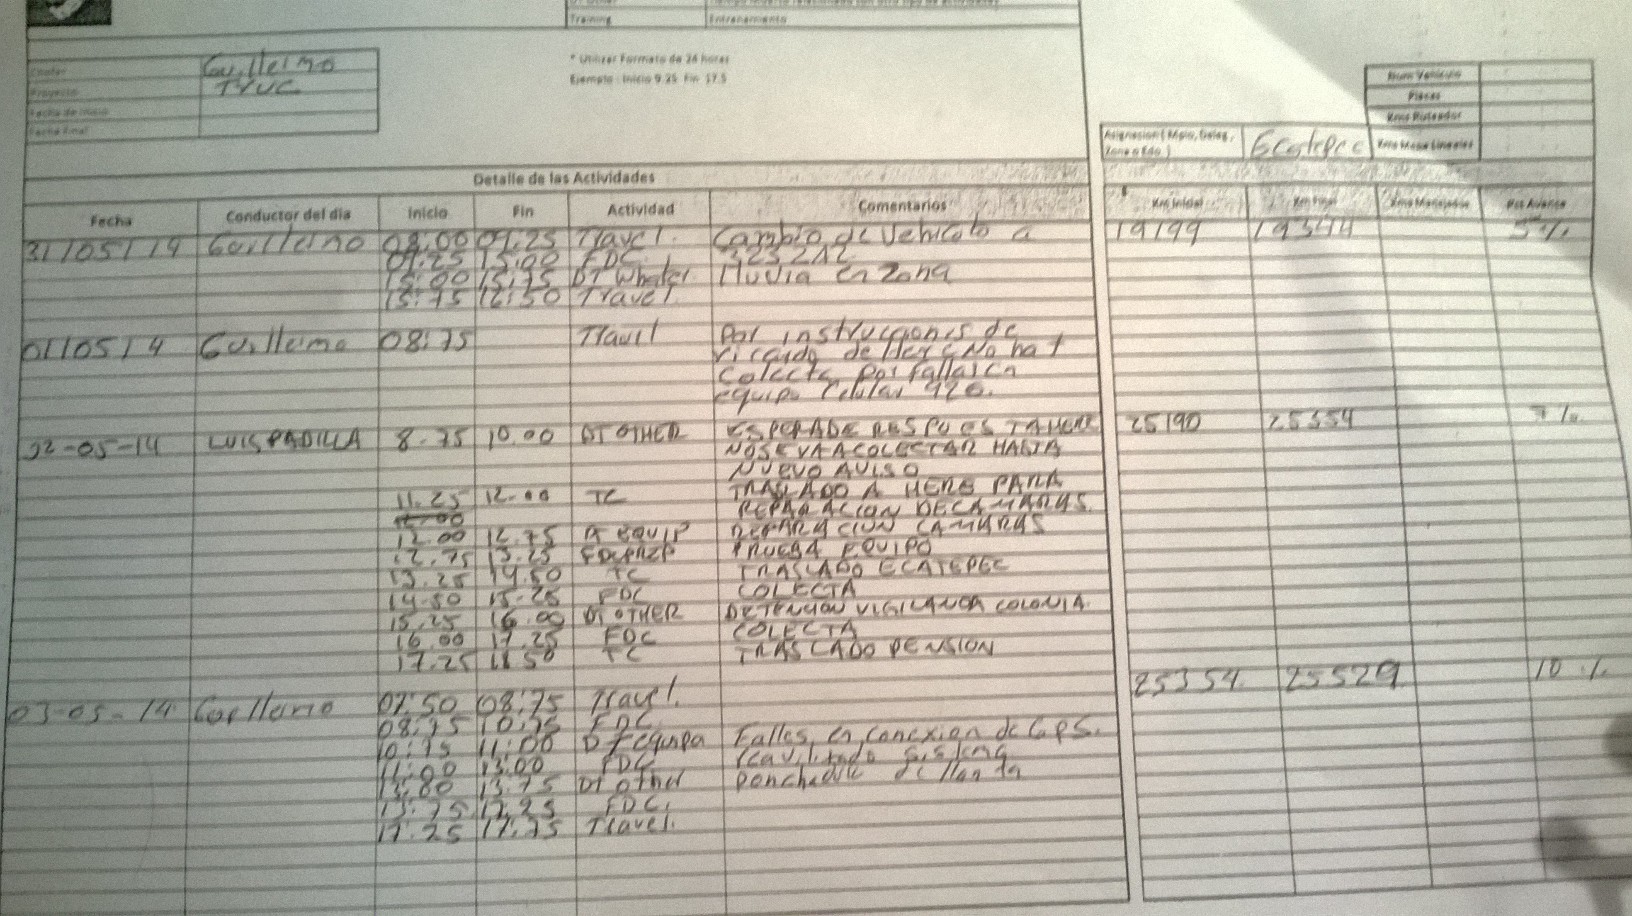 Training Entrenamiento
* Utilizar Formato de 24 horas
Ejemplo: Inicio 9.25 Fin 17.5
Guillermo
Proyecto TVUC
Fecha de Inicio
Fecha Final
Num Vehiculo
Placas
Kms Ruteador
Asignacion ( Mpio, Deleg, Zona o Edo ) Ecatepec Kms Mapa Lineales
Detalle de las Actividades
Fecha Conductor del dia Inicio Fin Actividad Comentarios Km Inicial Km Final Kms Manejados Pct Avance
31/05/14 Guillermo 08:00 09:25 Travel. Cambio de Vehiculo a 19199 19344 5%
09:25 15:00 FDC. 323212
15:00 15:75 DT Whater. lluvia en zona
15:75 17:50 Travel
01/05/14 Guillermo 08:75 Travel Por instrucciones de
ricardo de Here No hay
Colecta por fallas en
equipo Celular 920.
02-05-14 LUIS PADILLA 8.75 10.00 DT OTHER ESPERA DE RESPUESTA HERE 25190 25354 7%
NO SE VA A COLECTAR HASTA
NUEVO AVISO
11.25 12.00 TC TRASLADO A HERE PARA
12.00 REPARACION DE CAMARAS.
12.00 12.75 DT EQUIP REPARACION CAMARAS
12.75 13.25 PRUEBA EQUIPO
13.25 14.50 TC TRASLADO ECATEPEC
14.50 15.25 FDC COLECTA
15.25 16.00 DT OTHER DETENCION VIGILANCIA COLONIA.
16.00 17.25 FDC COLECTA
17.25 18.50 TC TRASLADO PENSION
03-05-14 Guillermo 07:50 08:75 Travel. 25354 25529 10 %
08:75 10:75 FDC.
10:75 11:00 DT equipo Fallas en conexion de GPS.
11:00 13:00 FDC sistema
13:00 13:75 DT other ponchadura de llanta
13:75 17:25 FDC.
17:25 17:75 Travel.